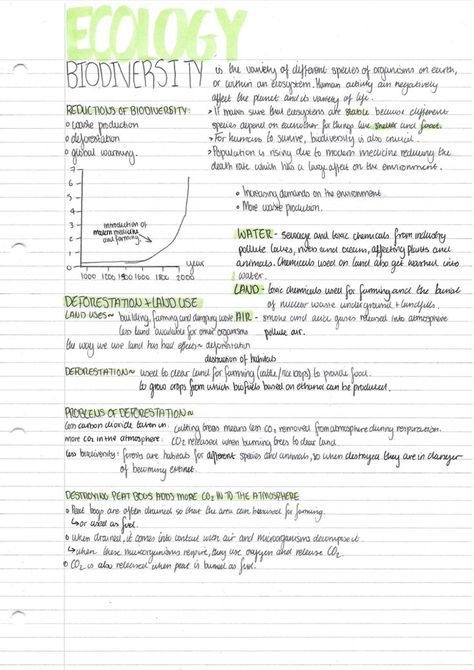 ECOLOGY
BIODIVERSITY is the variety of different species of organisms on earth,
or within an ecosystem. Human activity can negatively
affect the planet and its variety of life.
REDUCTIONS OF BIODIVERSITY:
• waste production
• deforestation
• global warming.
> It makes sure that ecosystems are stable because different
species depend on eachother for things like shelter and food.
> For humans to survive, biodiversity is also crucial.
> Population is rising due to modern medicine reducing the
death rate which has a large affect on the environment.
• Increasing demands on the environment
• More waste production.
6
5
4
3
2
1
introduction of
modern medicine
and farming.
1000 1200 1400 1600 1800 2000
year
WATER - sewage and toxic chemicals from industry
pollute lakes, rivers and oceans, affecting plants and
animals. Chemicals used on land also get washed into
water.
LAND - toxic chemicals used for farming and the burial
of nuclear waste underground + landfills.
AIR - smoke and acidic gases released into atmosphere
pollute air.
DEFORESTATION + LAND USE
LAND USES ~ building, farming and dumping waste
less land available for other organisms
the way we use land has bad effects ~ deforestation
destruction of habitats
DEFORESTATION ~ used to clear land for farming (cattle/rice crops) to provide food.
to grow crops from which biofuels based on ethanol can be produced.
PROBLEMS OF DEFORESTATION ~
less carbon dioxide taken in: cutting trees means less CO2 removed from atmosphere during respiration.
more CO2 in the atmosphere: CO2 released when burning trees to clear land.
less biodiversity: forests are habitats for different species and animals, so when destroyed they are in danger
of becoming extinct.
DESTROYING PEAT BOGS ADDS MORE CO2 IN TO THE ATMOSPHERE
• Peat bogs are often drained so that the area can be used for farming.
↳ or used as fuel.
• When drained, it comes into contact with air and microorganisms decompose it.
↳ when these microorganisms respire, they use oxygen and release CO2.
• CO2 is also released when peat is burned as fuel.